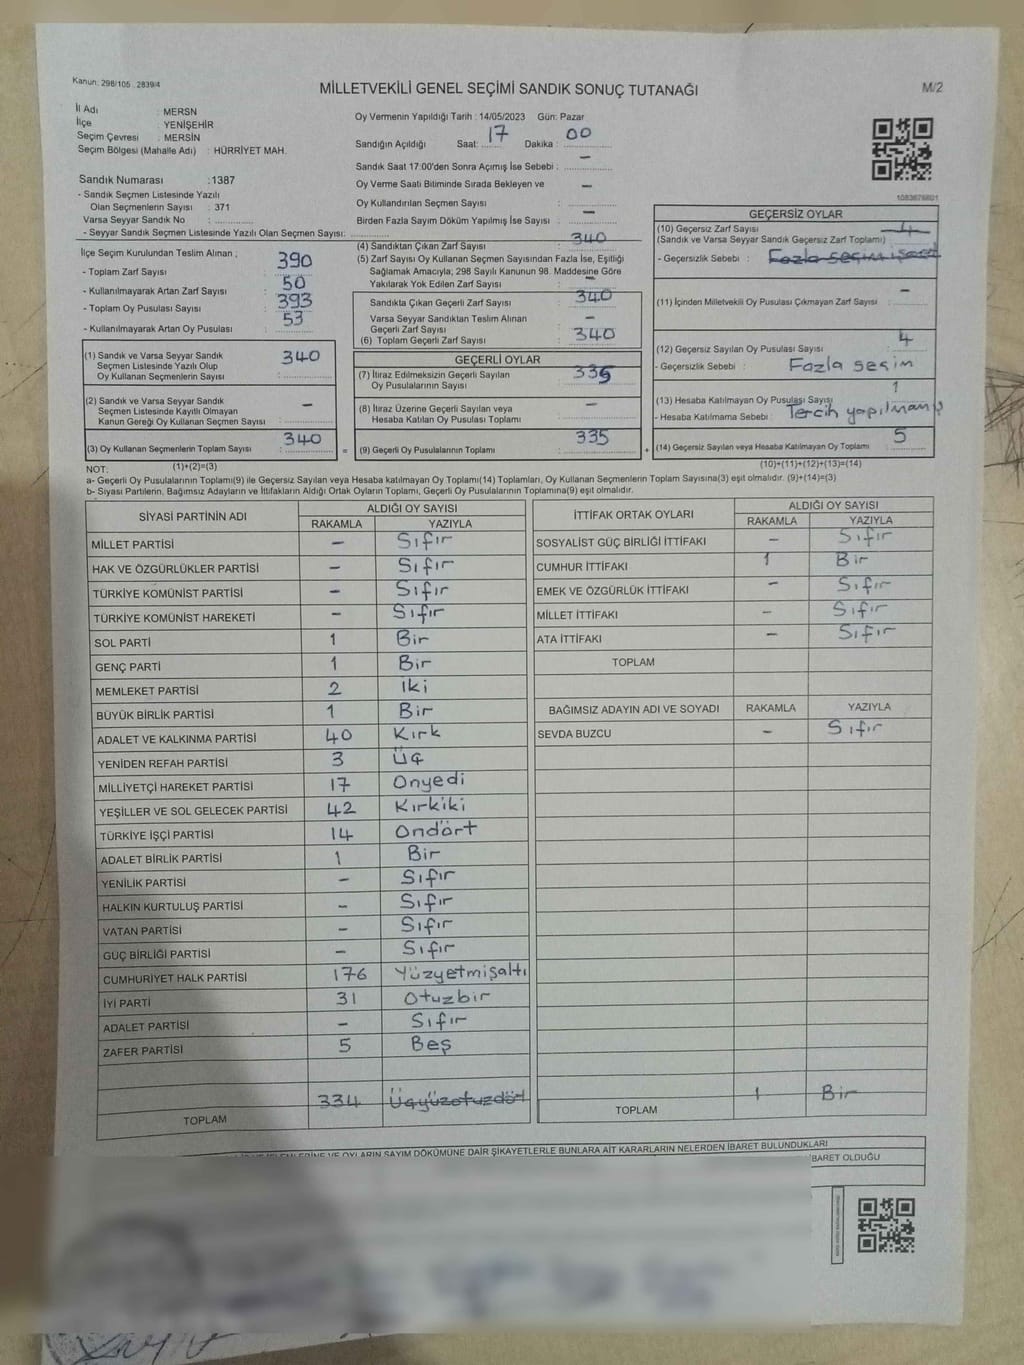 Kanun: 298/105 . 2839/4
MİLLETVEKİLİ GENEL SEÇİMİ SANDIK SONUÇ TUTANAĞI
M/2
İl Adı : MERSN
İlçe : YENİŞEHİR
Seçim Çevresi : MERSİN
Seçim Bölgesi (Mahalle Adı) : HÜRRİYET MAH.
Oy Vermenin Yapıldığı Tarih : 14/05/2023 Gün: Pazar
Sandığın Açıldığı Saat: 17 Dakika : 00
Sandık Saat 17:00'den Sonra Açımış İse Sebebi : –
Oy Verme Saati Bitiminde Sırada Bekleyen ve
Oy Kullandırılan Seçmen Sayısı : –
Birden Fazla Sayım Döküm Yapılmış İse Sayısı : –
Sandık Numarası :1387
- Sandık Seçmen Listesinde Yazılı
Olan Seçmenlerin Sayısı : 371
Varsa Seyyar Sandık No :
- Seyyar Sandık Seçmen Listesinde Yazılı Olan Seçmen Sayısı:
1083676801
İlçe Seçim Kurulundan Teslim Alınan ;
- Toplam Zarf Sayısı : 390
- Kullanılmayarak Artan Zarf Sayısı : 50
- Toplam Oy Pusulası Sayısı : 393
- Kullanılmayarak Artan Oy Pusulası : 53
(1) Sandık ve Varsa Seyyar Sandık
Seçmen Listesinde Yazılı Olup
Oy Kullanan Seçmenlerin Sayısı : 340
(2) Sandık ve Varsa Seyyar Sandık
Seçmen Listesinde Kayıtlı Olmayan
Kanun Gereği Oy Kullanan Seçmen Sayısı : –
(3) Oy Kullanan Seçmenlerin Toplam Sayısı : 340
(1)+(2)=(3)
(4) Sandıktan Çıkan Zarf Sayısı : 340
(5) Zarf Sayısı Oy Kullanan Seçmen Sayısından Fazla İse, Eşitliği
Sağlamak Amacıyla, 298 Sayılı Kanunun 98. Maddesine Göre
Yakılarak Yok Edilen Zarf Sayısı : –
Sandıkta Çıkan Geçerli Zarf Sayısı : 340
Varsa Seyyar Sandıktan Teslim Alınan
Geçerli Zarf Sayısı : –
(6) Toplam Geçerli Zarf Sayısı : 340
GEÇERLİ OYLAR
(7) İtiraz Edilmeksizin Geçerli Sayılan
Oy Pusulalarının Sayısı : 335
(8) İtiraz Üzerine Geçerli Sayılan veya
Hesaba Katılan Oy Pusulası Toplamı : –
= (9) Geçerli Oy Pusulalarının Toplamı : 335 +
GEÇERSİZ OYLAR
(10) Geçersiz Zarf Sayısı 4
(Sandık ve Varsa Seyyar Sandık Geçersiz Zarf Toplamı) :
- Geçersizlik Sebebi : Fazla seçim
(11) İçinden Milletvekili Oy Pusulası Çıkmayan Zarf Sayısı : –
(12) Geçersiz Sayılan Oy Pusulası Sayısı : 4
- Geçersizlik Sebebi : Fazla seçim
(13) Hesaba Katılmayan Oy Pusulası Sayısı : 1
- Hesaba Katılmama Sebebi : Tercih yapılmamış
(14) Geçersiz Sayılan veya Hesaba Katılmayan Oy Toplamı : 5
(10)+(11)+(12)+(13)=(14)
NOT:
a- Geçerli Oy Pusulalarının Toplamı(9) ile Geçersiz Sayılan veya Hesaba katılmayan Oy Toplamı(14) Toplamları, Oy Kullanan Seçmenlerin Toplam Sayısına(3) eşit olmalıdır. (9)+(14)=(3)
b- Siyasi Partilerin, Bağımsız Adayların ve İttifakların Aldığı Ortak Oyların Toplamı, Geçerli Oy Pusulalarının Toplamına(9) eşit olmalıdır.
SİYASİ PARTİNİN ADI ALDIĞI OY SAYISI
RAKAMLA YAZIYLA
MİLLET PARTİSİ – Sıfır
HAK VE ÖZGÜRLÜKLER PARTİSİ – Sıfır
TÜRKİYE KOMÜNİST PARTİSİ – Sıfır
TÜRKİYE KOMÜNİST HAREKETİ – Sıfır
SOL PARTİ 1 Bir
GENÇ PARTİ 1 Bir
MEMLEKET PARTİSİ 2 iki
BÜYÜK BİRLİK PARTİSİ 1 Bir
ADALET VE KALKINMA PARTİSİ 40 Kırk
YENİDEN REFAH PARTİSİ 3 Üç
MİLLİYETÇİ HAREKET PARTİSİ 17 Onyedi
YEŞİLLER VE SOL GELECEK PARTİSİ 42 Kırkiki
TÜRKİYE İŞÇİ PARTİSİ 14 Ondört
ADALET BİRLİK PARTİSİ 1 Bir
YENİLİK PARTİSİ – Sıfır
HALKIN KURTULUŞ PARTİSİ – Sıfır
VATAN PARTİSİ – Sıfır
GÜÇ BİRLİĞİ PARTİSİ – Sıfır
CUMHURİYET HALK PARTİSİ 176 Yüzyetmişaltı
İYİ PARTİ 31 Otuzbir
ADALET PARTİSİ – Sıfır
ZAFER PARTİSİ 5 Beş
TOPLAM 334 Üçyüzotuzdört
İTTİFAK ORTAK OYLARI ALDIĞI OY SAYISI
RAKAMLA YAZIYLA
SOSYALİST GÜÇ BİRLİĞİ İTTİFAKI – Sıfır
CUMHUR İTTİFAKI 1 Bir
EMEK VE ÖZGÜRLÜK İTTİFAKI – Sıfır
MİLLET İTTİFAKI – Sıfır
ATA İTTİFAKI – Sıfır
TOPLAM
BAĞIMSIZ ADAYIN ADI VE SOYADI RAKAMLA YAZIYLA
SEVDA BUZCU – Sıfır
TOPLAM 1 Bir
OYLARIN SAYIM DÖKÜMÜNE DAİR ŞİKAYETLERLE BUNLARA AİT KARARLARIN NELERDEN İBARET BULUNDUKLARI
İBARET OLDUĞU